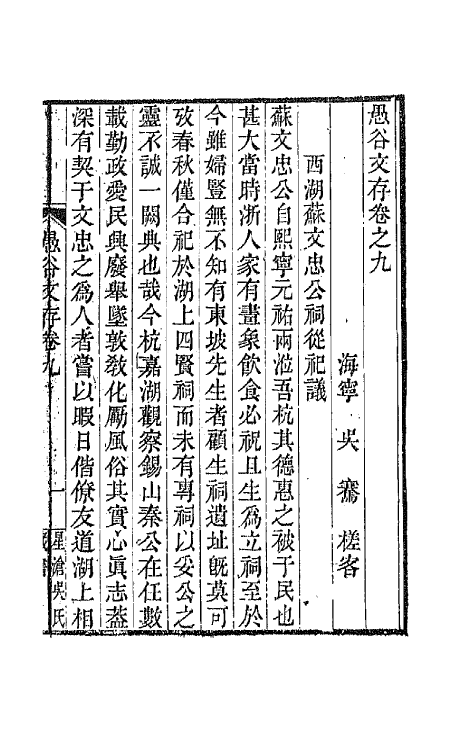 愚谷文存卷之九
海寧 吳 騫 槎客
西湖蘇文忠公祠從祀議
蘇文忠公自熙寧元祐兩涖吾杭其德惠之被于民也
甚大當時浙人家有畫象飲食必祝且生爲立祠至於
今雖婦豎無不知有東坡先生者顧生祠遺址旣莫可
攷春秋僅合祀於湖上四賢祠而未有專祠以妥公之
靈不誠一闕典也哉今杭嘉湖觀察錫山秦公在任數
載勤政愛民興廢舉墜敦敎化厲風俗其實心眞志葢
深有契于文忠之爲人者嘗以暇日偕僚友道湖上相
愚谷文存卷九
一
星滄吳氏